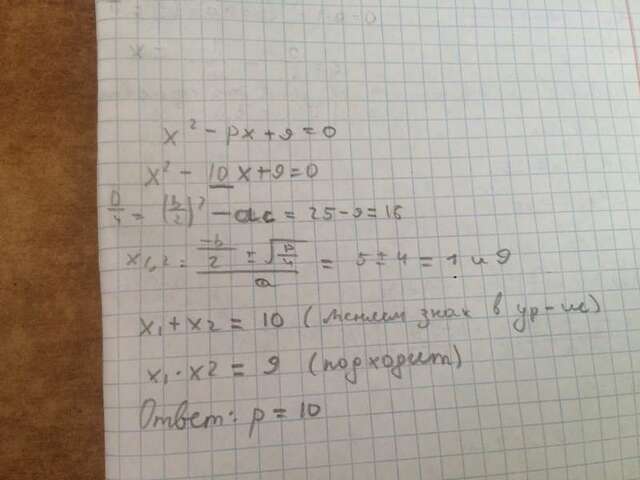 x² - px + 9 = 0
x² - 10x + 9 = 0
D/4 = (b/2)² - ac = 25 - 9 = 16
x1,2 = (-b/2 ± √(D/4)) / a = 5 ± 4 = 1 и 9
x₁ + x2 = 10 (меняем знак в ур-ие)
x₁ · x2 = 9 (подходит)
Ответ: p = 10